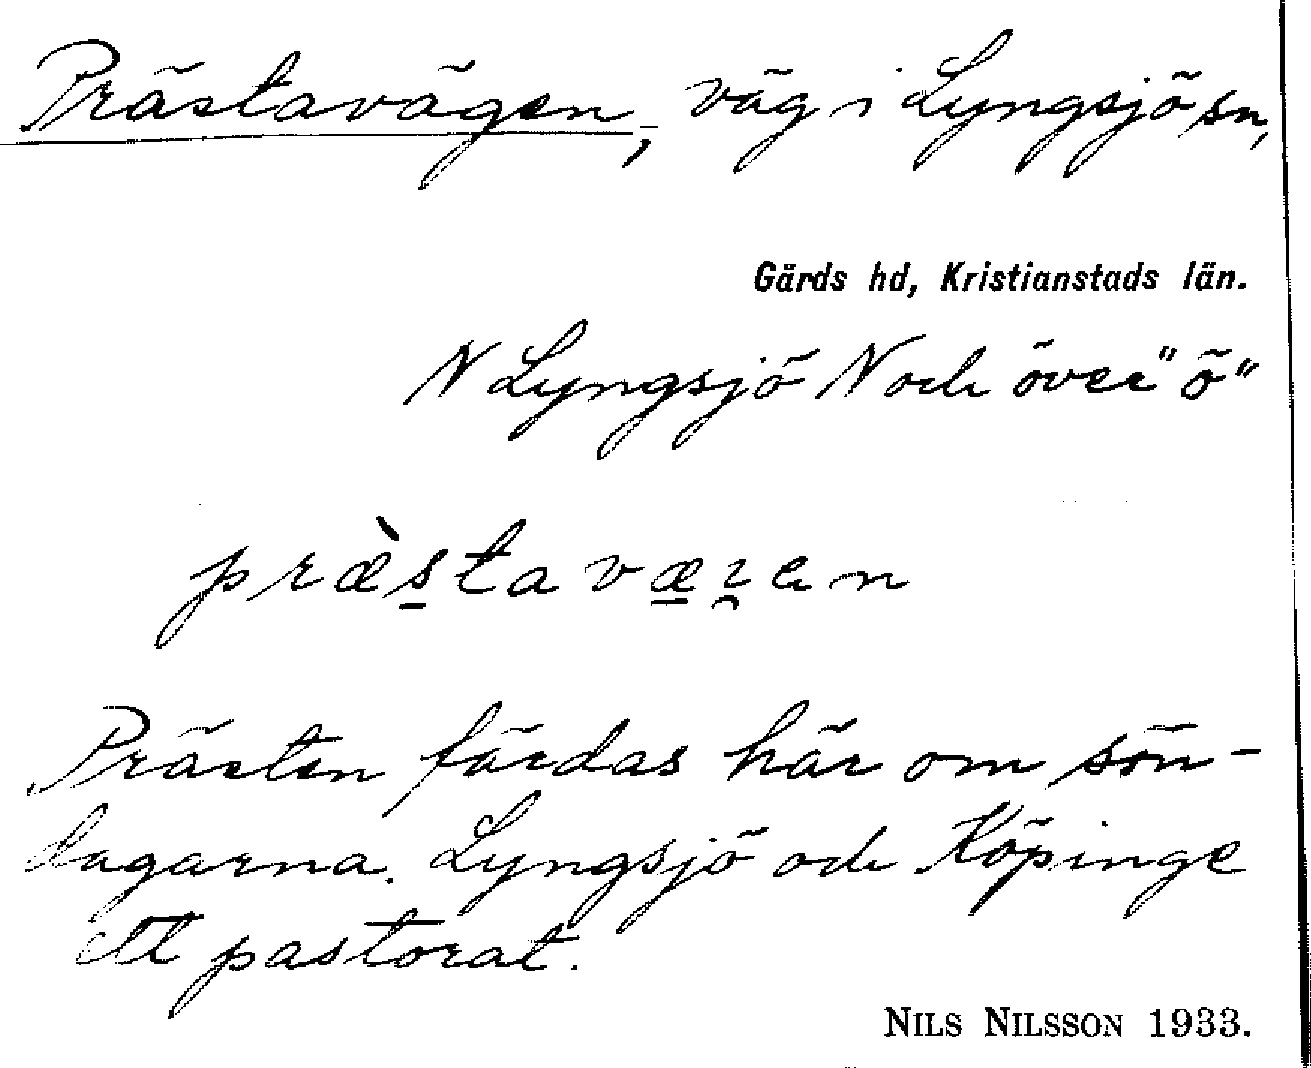 Prästavägen, väg i Lyngsjö sn,
Gärds hd, Kristianstads län.
N Lyngsjö N och över "ö"
præ̀s̠tavæ̠ɀ̯en
Prästen färdas här om sön-
dagarna. Lyngsjö och Köpinge
ett pastorat.
NILS NILSSON 1933.